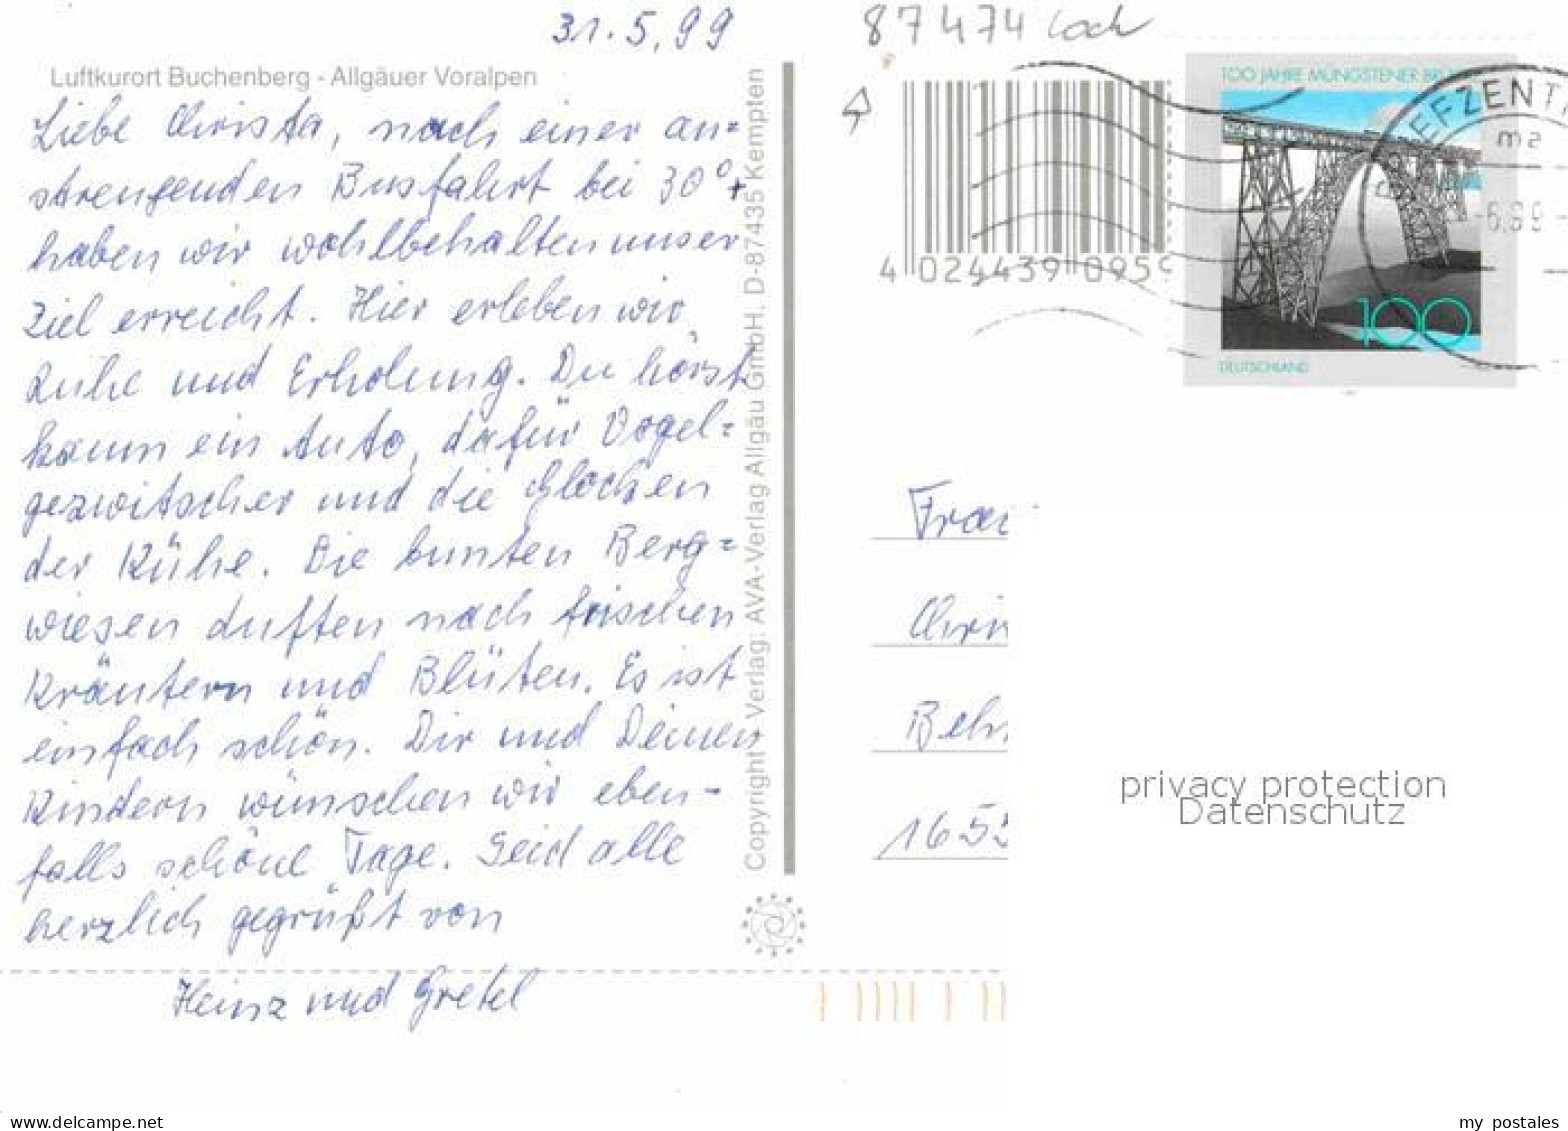 31.5.99
Luftkurort Buchenberg - Allgäuer Voralpen
Liebe Christa, nach einer an=
strengenden Busfahrt bei 30°+
haben wir wohlbehalten unser
Ziel erreicht. Hier erleben wir
Ruhe und Erholung. Du hörst
kaum ein Auto, dafür Vogel=
gezwitscher und die Glocken
der Kühe. Die bunten Berg=
wiesen duften nach frischen
Kräutern und Blüten. Es ist
einfach schön. Dir und Deinen
Kindern wünschen wir eben-
falls schöne Tage. Seid alle
herzlich gegrüßt von
Heinz und Gretel
Copyright + Verlag: AVA-Verlag Allgäu GmbH. D-87435 Kempten
87474
4 024439 095
100 JAHRE MÜNGSTENER BRÜCKE
100
DEUTSCHLAND
EFZENT
ma
-6.99-
Frau
Chris
Beh
1655
privacy protection
Datenschutz
my postales